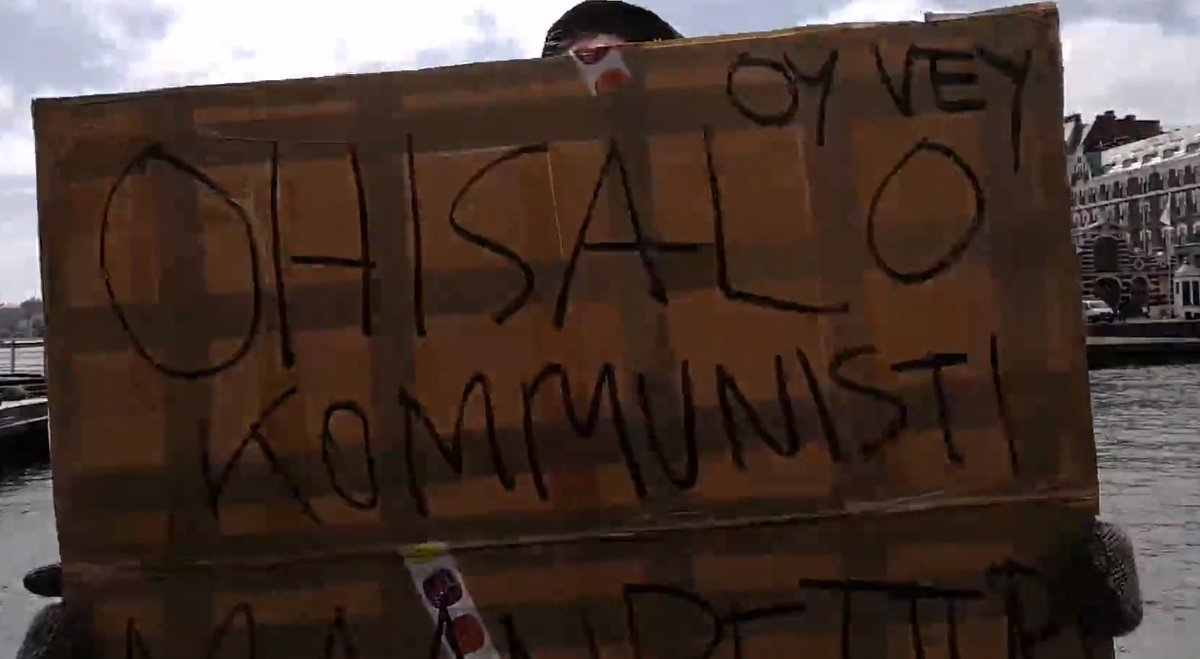 OY VEY
OHISALO
KOMMUNISTI